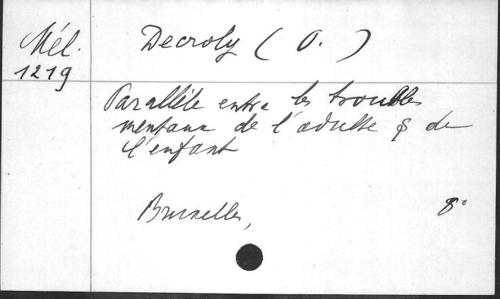 Mél.
1219
Decroly (O.)
Parallèle entre les troubles
mentaux de l'adulte & de
l'enfant
Bruxelles, 8°